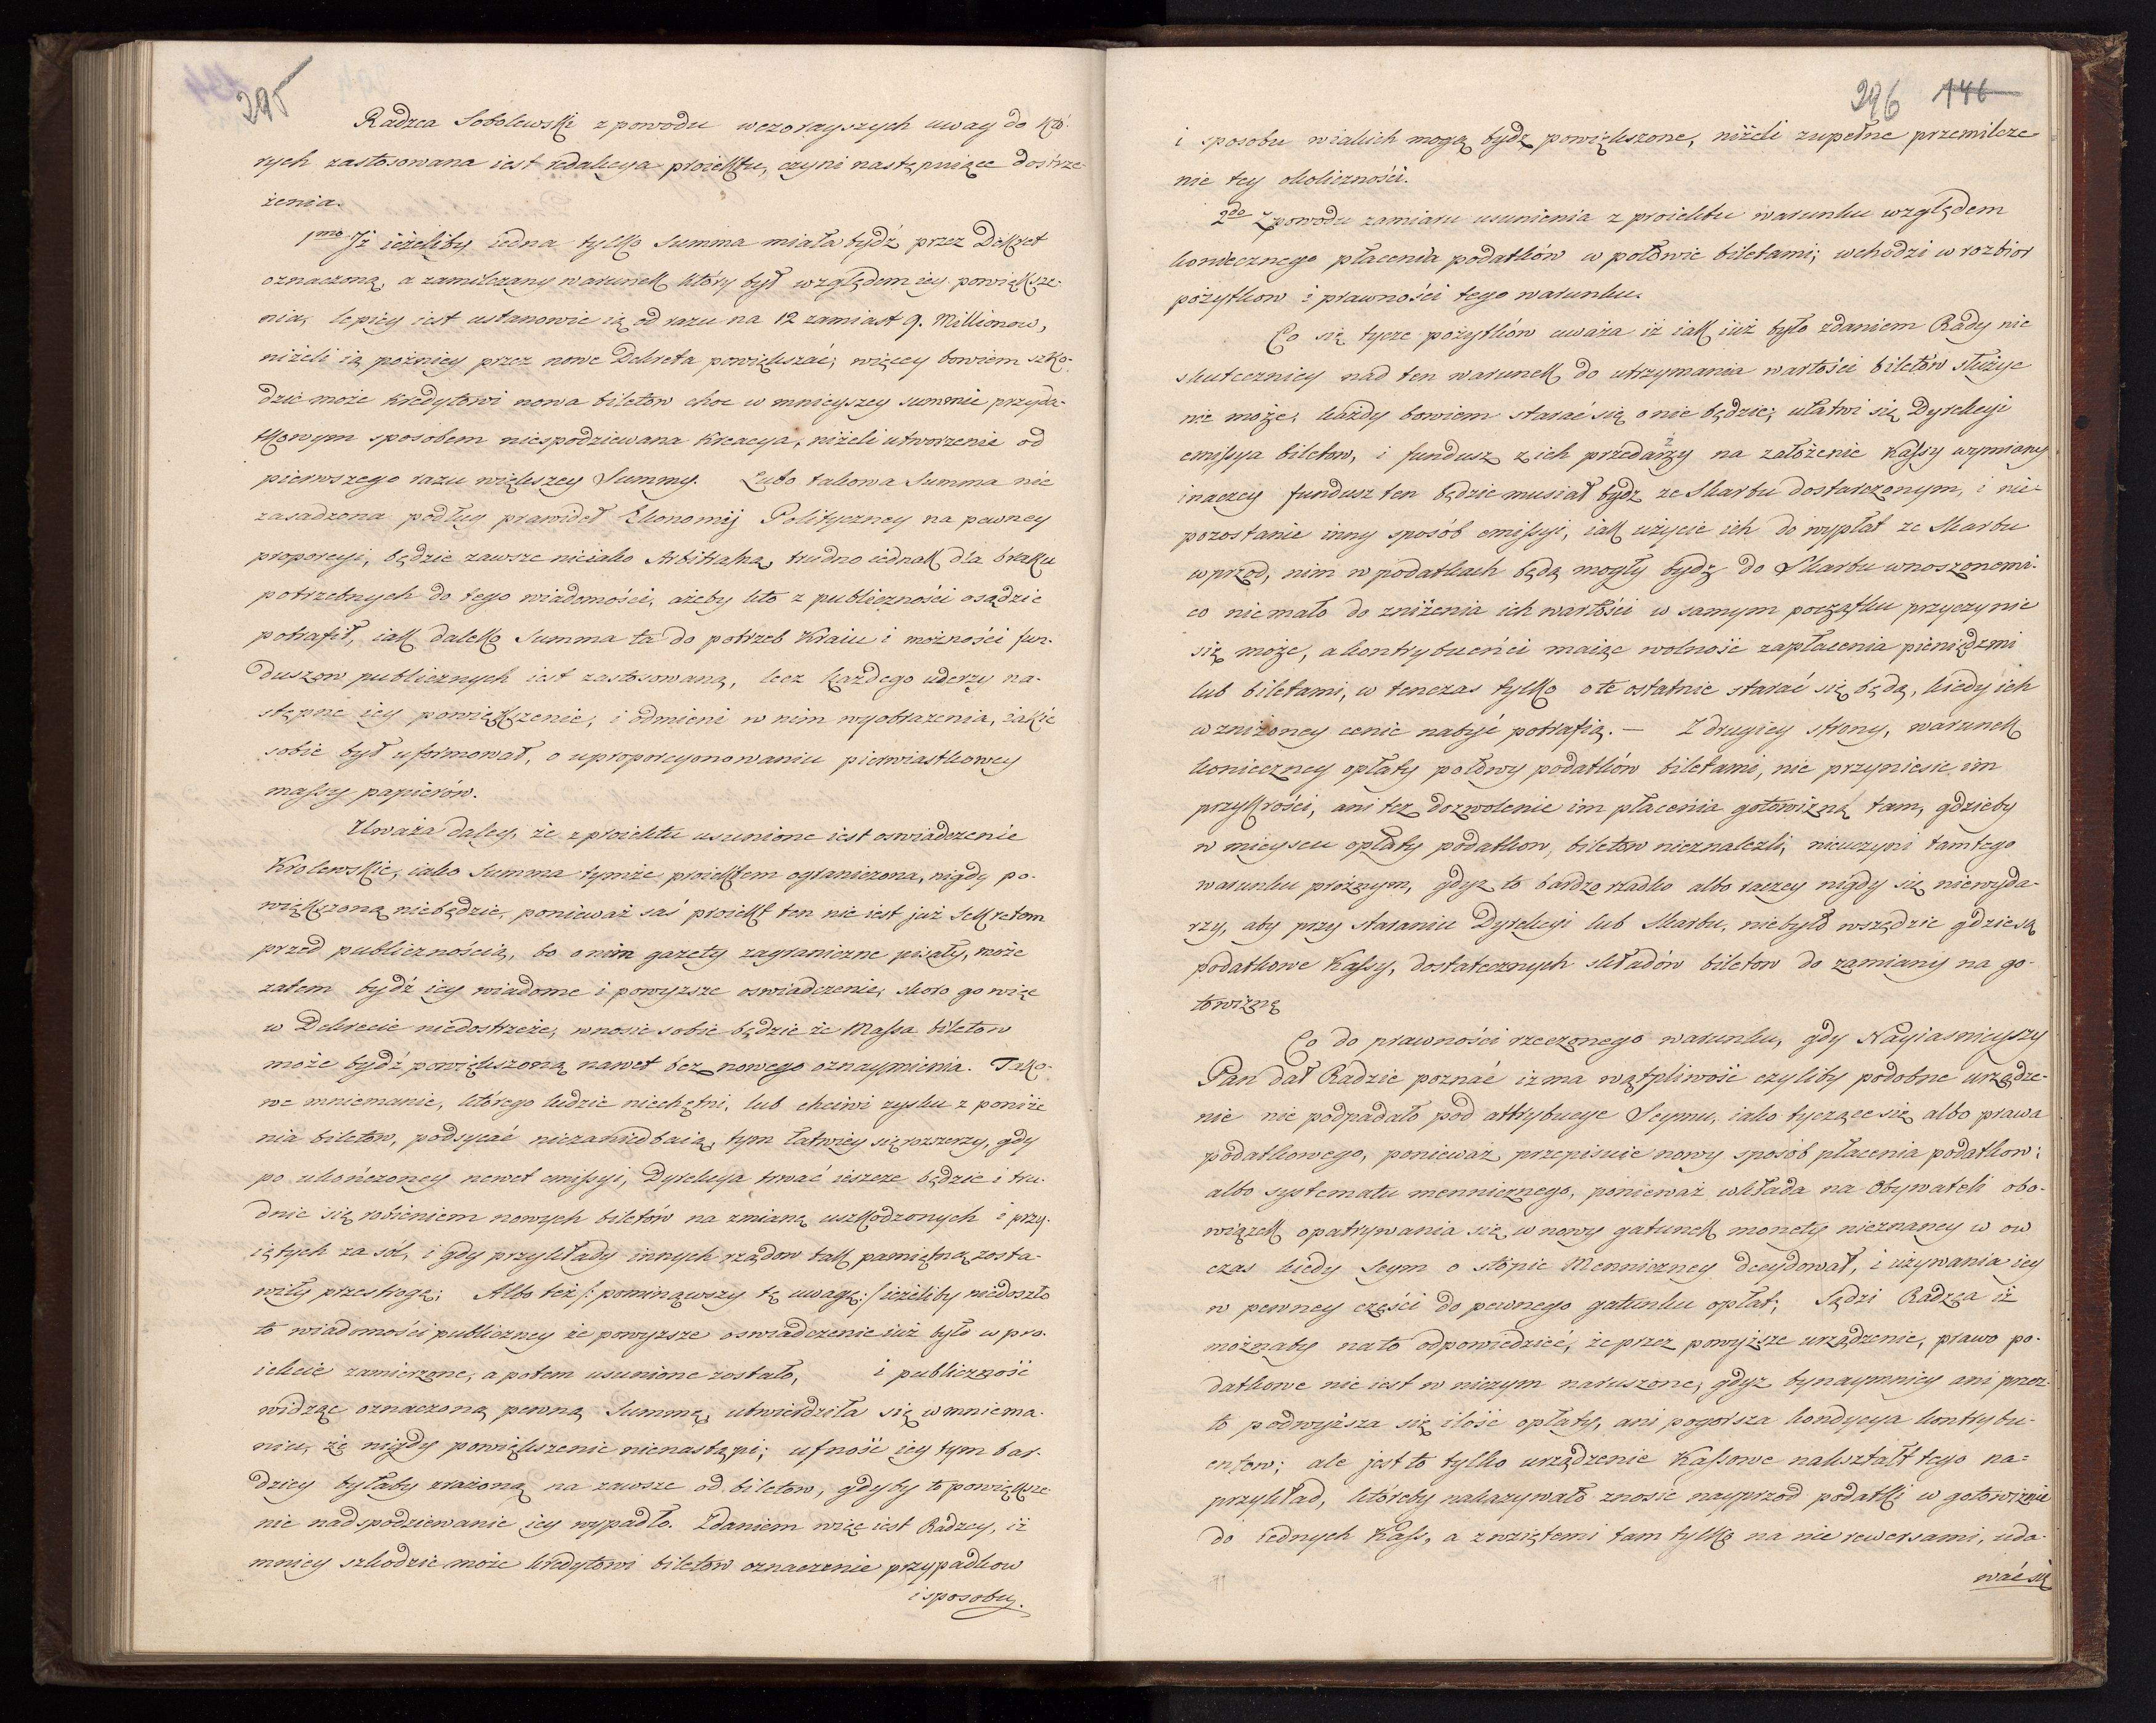 295
Radzca Sobolewski z powodu wczorayszych uwag do któ-
rych zastosowana iest redakcya proiektu, czyni następuiące dostrze-
żenia.
1mo Iż ieżeliby iedna tylko Summa miała bydź przez Dekret
oznaczoną, a zamilczany warunek który był względem iey powiększe-
nia, lepiey iest ustanowić ią od razu na 12 zamiast 9. Millionow,
niżeli ią pożniey przez nowe Dekreta powiększać; więcey bowiem szko-
dzić może kredytowi nowa biletow choc w mnieyszey summie przyda-
tkowym sposobem niespodziewana Kreacya, niżeli utworzenie od
pierwszego razu większey Summy. Lubo takowa Summa nie
zasadzona podług prawideł Ekonomij Polityczney na pewney
proporcyi, będzie zawsze nieiako Arbitralną, trudno iednak dla braku
potrzebnych do tego wiadomości, ażeby kto z publiczności osądzić
potrafił, iak daleko Summa ta do potrzeb Kraiu i możności fun-
duszow publicznych iest zastosowaną, lecz każdego uderzy na-
stępne iey powiększenie, i odmieni w nim wyobrażenia, iakie
sobie był uformował, o uproporcyonowaniu pierwiastkowey
massy papierów.
Uważa daley, że z proiektu usunione iest oswiadczenie
Krolewskie, iako Summa tymże proiektem ograniczona, nigdy po-
większoną niebędzie, ponieważ zaś proiekt ten nie iest już Sekretem
przed publicznością, bo o nim gazety zagraniczne pisały, może
zatem bydź iey wiadome i powyzsze oswiadczenie, skoro go więc
w Dekrecie niedostrzeże, wnosić sobie będzie że Massa biletow
może bydź powiększoną nawet bez nowego oznaymienia. Tako-
we mniemanie, którego ludzie niechętni, lub chciwi zysku z poniże
nia biletow, podsycać niezaniedbaią, tym łatwiey się rozszerzy, gdy
po ukończoney nawet emissyi, Dyrekcya trwać ieszcze będzie i tru-
dnić się robieniem nowych biletów na zmianę uszkodzonych i przy-
iętych za sól, i gdy przykłady innych rządow tak pamiętną zosta-
wiły przestrogę; Albo też /: pominąwszy tę uwagę :/ ieżeliby niedoszło
to wiadomości publiczney że powyzsze oswiadczenie iuż było w pro-
iekcie zamierzone, a potem usunione zostało, i publiczność
widząc oznaczoną pewną Summę, utwierdziła się w mniema-
niu, że nigdy powiększenie nienastąpi; ufność iey tym bar-
dziey byłaby zrażoną na zawsze od biletow, gdyby to powiększe-
nie nadspodziewanie iey wypadło. Zdaniem więc iest Radzcy, iż
mniey szkodzić może kredytowi biletow oznaczenie przypadkow
i sposobu.
296 146
i sposobu w iakich mogą bydz powiększone, niżeli zupełne przemilcze-
nie tey okoliczności.
2do Z powodu zamiaru usunienia z proiektu warunku względem
koniecznego płacenia podatków w połowie biletami; wchodzi w rozbior
pożytkow i prawności tego warunku.
Co się tycze pożytków uważa iż iak iuż było zdaniem Rady nic
skuteczniey nad ten warunek do utrzymania wartości biletów służyc
nie może, każdy bowiem starać się o nie będzie; ułatwi się Dyrekcyi
emissya biletow, i fundusz z ich przedarzy na założenie Kassy wymiany
inaczey fundusz ten będzie musiał bydz ze Skarbu dostarczonym, i nie-
pozostanie inny sposób emissyi, iak użycie ich do wypłat ze Skarbu
wprzod, nim w podatkach będą mogły bydz do Skarbu wnoszonemi.
co niemało do zniżenia ich wartości w samym początku przyczynić
się może, a kontrybuenci maiąc wolność zapłacenia pieniędzmi
lub biletami, w tenczas tylko o te ostatnie starać się będą, kiedy ich
w zniżoney cenie nabyć potrafią. — Z drugiey strony, warunek
konieczney opłaty połowy podatków biletami, nie przyniesie im
przykrości, ani też dozwolenie im płacenia gotowizną tam, gdzieby
w mieyscu opłaty podatkow, biletow nieznalezli, nieuczyni tamtego
warunku próżnym, gdyz to bardzo rzadko albo raczey nigdy się niewyda-
rzy, aby przy staraniu Dyrekcyi lub Skarbu, niebyło wszędzie gdzie są
podatkowe Kassy, dostatecznych składów biletow do zamiany na go-
towiznę
Co do prawności rzeczonego warunku, gdy Nayiasnieyszy
Pan dał Radzie poznać iż ma wątpliwość czyliby podobne urządze-
nie nie podpadało pod attrybucye Seymu, iako tyczące się albo prawa
podatkowego, ponieważ przepisuie nowy sposób płacenia podatkow;
albo systematu mennicznego, ponieważ wkłada na Obywateli obo-
wiązek opatrywania się w nowy gatunek monety nieznaney w ow
czas kiedy Seym o stopie Menniczney decydował, i używania iey
w pewney części do pewnego gatunku opłat; Sądzi Radzca iż
możnaby na to odpowiedzieć, że przez powyższe urządzenie, prawo po-
datkowe nie iest w niczym naruszone, gdyz bynaymniey ani przez
to podwyższa się ilość opłaty, ani pogorsza kondycya kontrybu-
entow; ale jest to tylko urządzenie Kassowe nakształt tego na-
przykład, któreby nakazywało znosic nayprzod podatki w gotowiznie
do iednych Kass, a z wziętemi tam tylko na nie rewersami, uda-
wać się